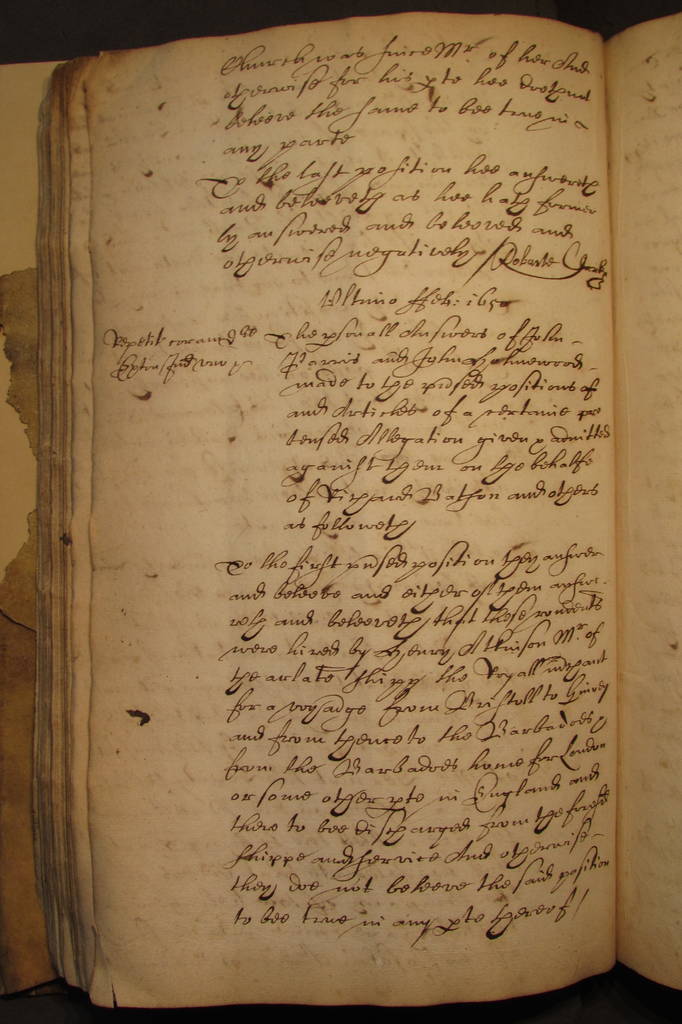 Church was since Mr. of her And
otherwise for his pte hee doth not
beleeve the same to bee true in
any parte
To the last position hee answereth
and beleeveth as hee hath former
ly answered and beleeved and
otherwise negatively / Robarte
Ultimo ffeb: 165
Repetit coram
The psonall Answers of John
Jarvis and John
made to the pnsed positions of
and Articles of a certaine pre
tensed Allegation given & admitted
against them on the behalfe
of Richard Batson and others
as followeth
To the first pnsed position they answer
and beleeve and either of them answe-
reth and beleeveth that these rondents
were hired by Henry Atkinson Mr. of
the arlate shipp the Royall mrchant
for a voyadge from Bristoll to Ginney
and from thence to the Barbadoes
from the Barbadoes home for London
or some other pte in England and
there to bee discharged from the foresd
shippe and service And otherwise
they doe not beleeve the said position
to bee true in any pte thereof /